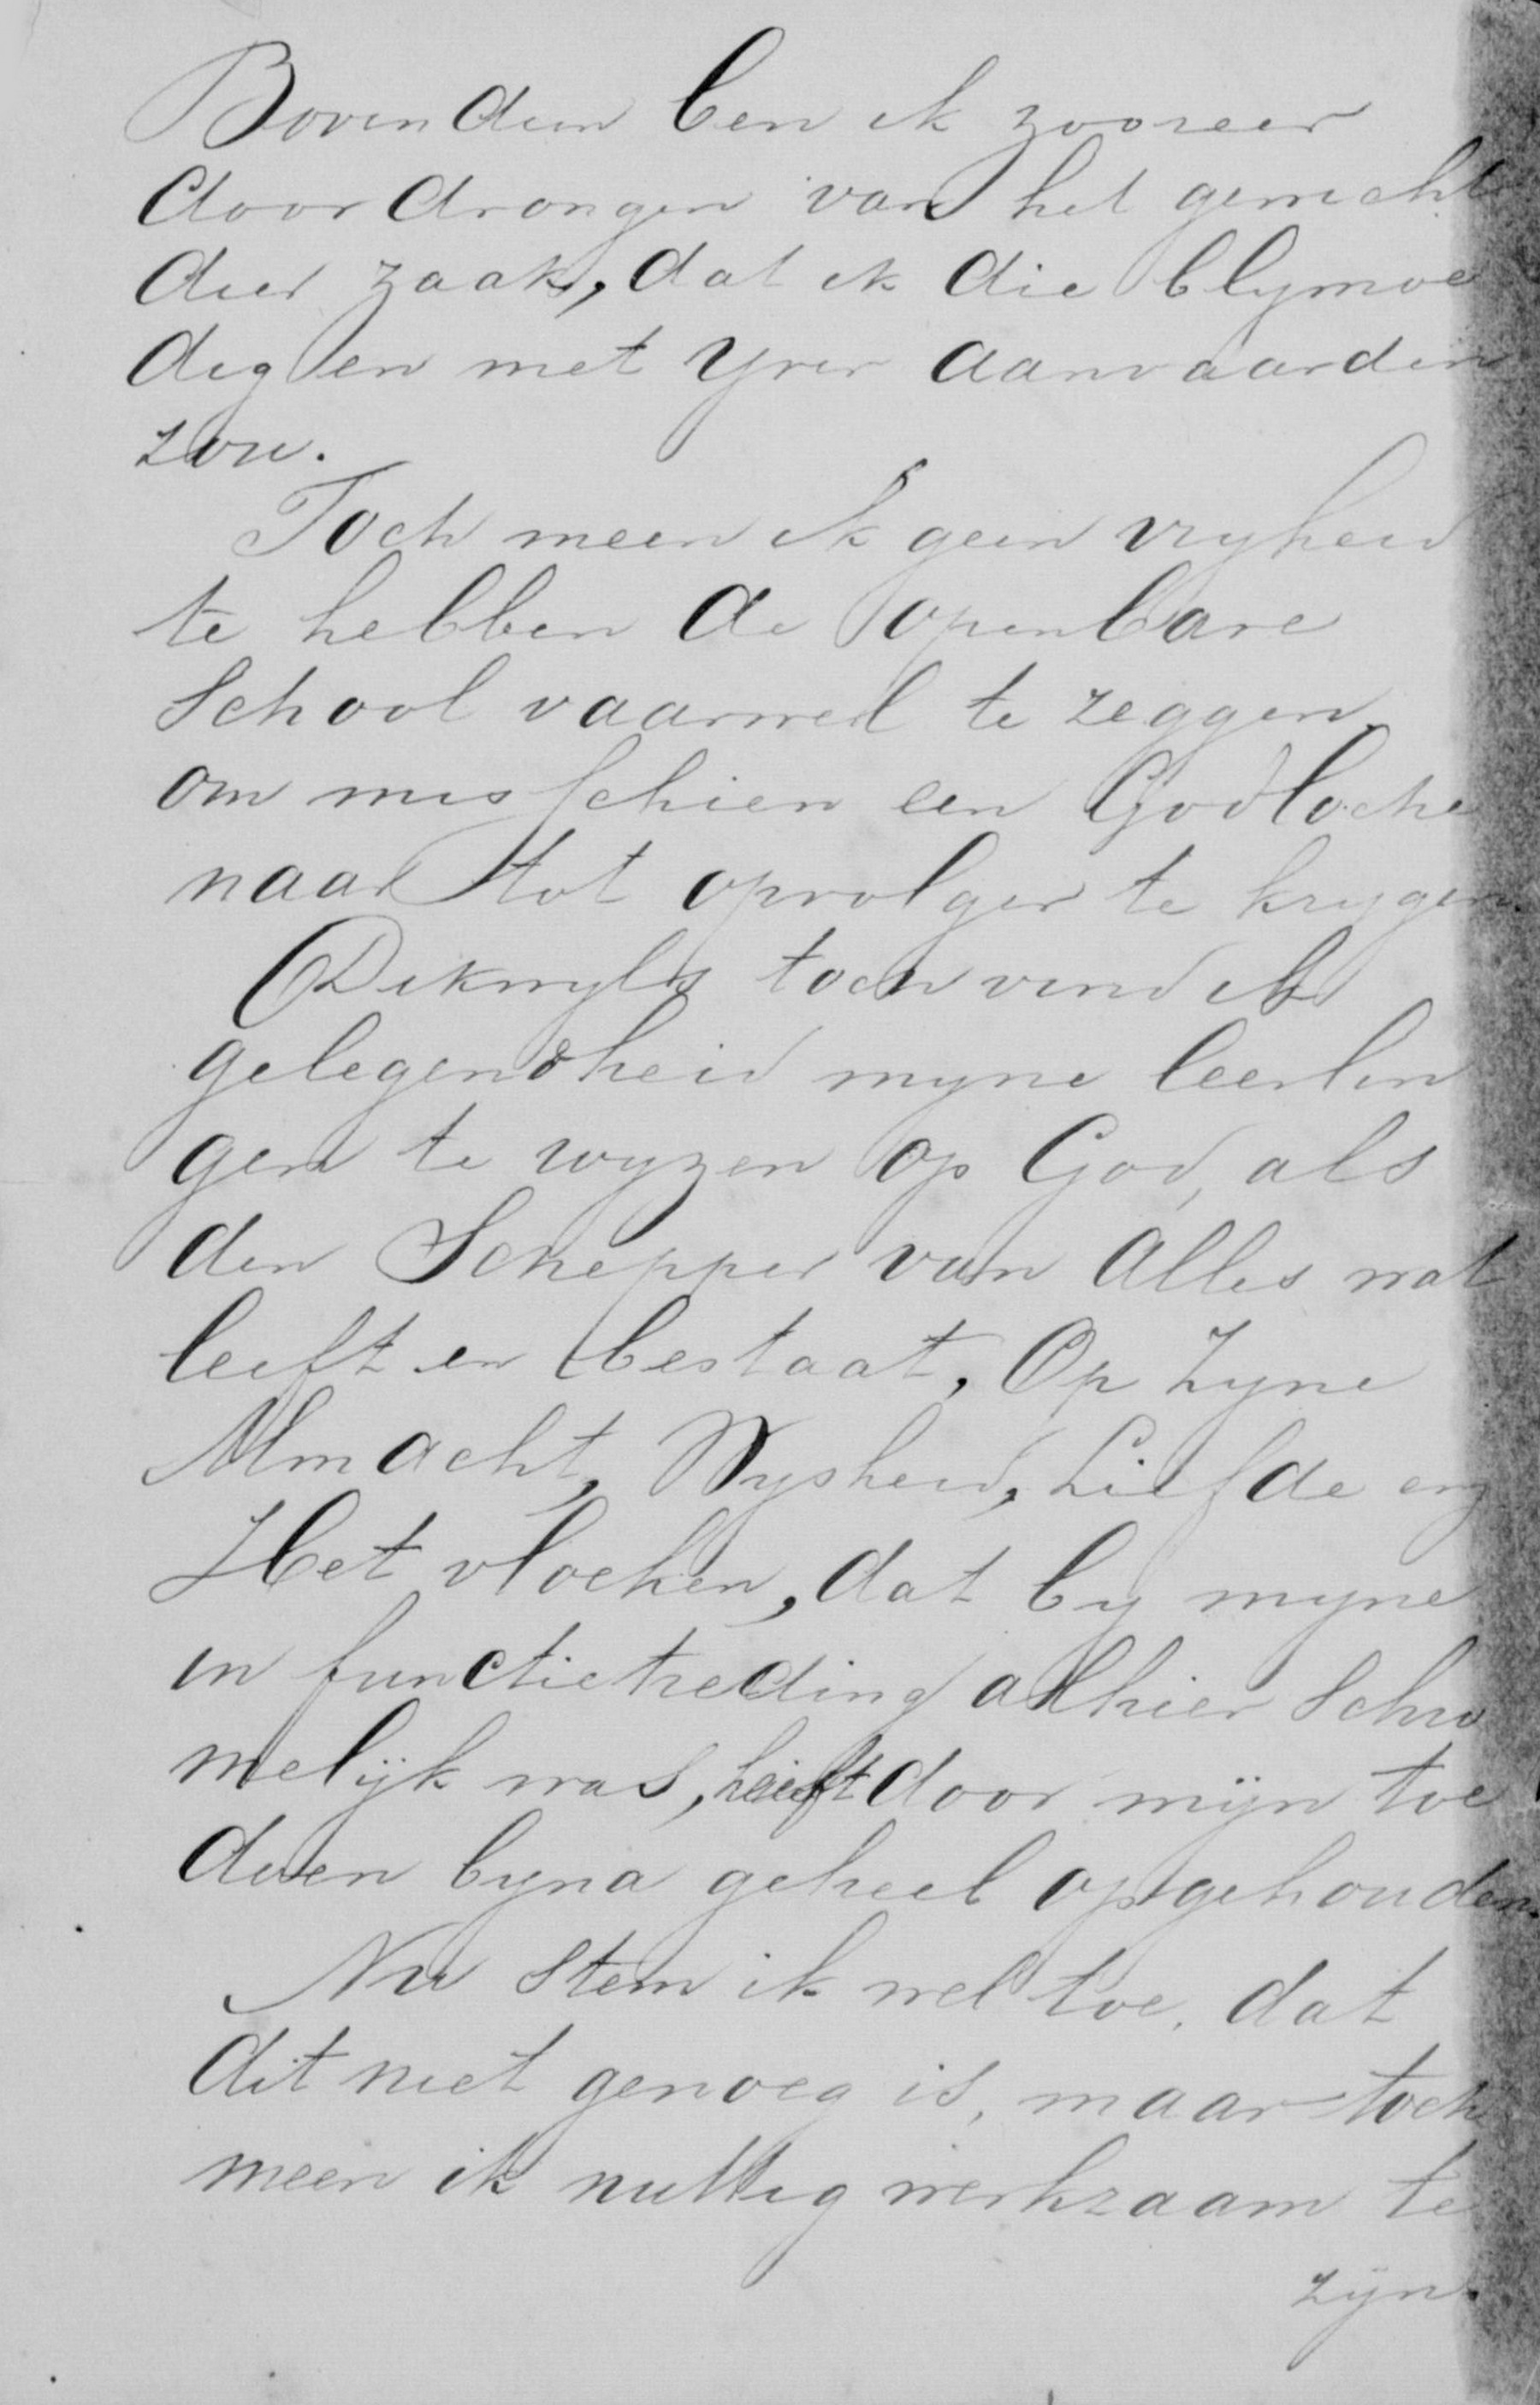 Bovendien ben ik zoozeer
doordrongen van het gewicht
dier zaak, dat ik die blymoe
dig en met yver aanvaarden
zou.
Toch meen ik geen vryheid
te hebben de openbare
School vaarwel te zeggen,
om misschien een Godlooche
naar tot opvolger te krygen.
Dikwyls toch vind ik
gelegendheid myne leerlin
gen te wyzen op God, als
den Schepper van alles wat
leeft en bestaat, Op Zyne
Almacht, Wysheid, Liefde enz
Het vloeken, dat by myne
in functietreding alhier Schro
melijk was, heeft door mijn toe
doen byna geheel opgehouden.
Nu Stem ik wel toe, dat
dit niet genoeg is, maar toch
meen ik nuttig werkzaam te
zijn.